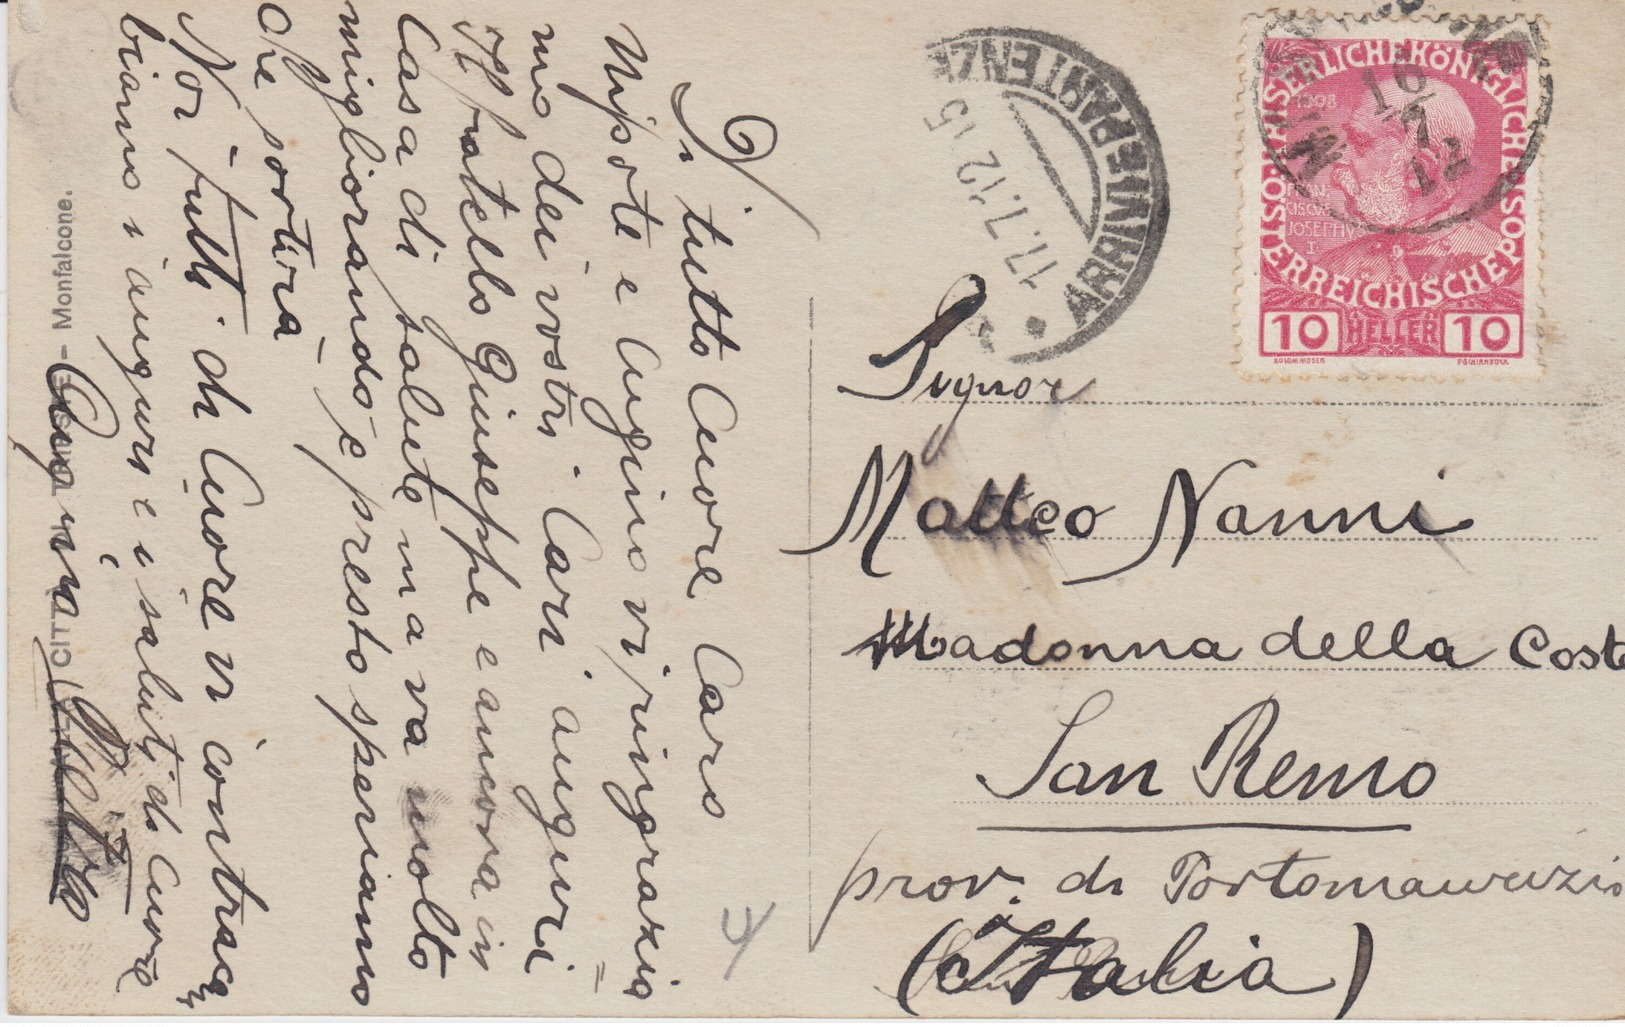 Di tutto Cuore Caro
Nipote e Cugino vi ringrazia=
mo dei vostri Cari auguri
Il fratello Giuseppe e ancora in
Casa di salute ma va molto
migliorando e presto speriamo
che sortirà
Noi tutti di Cuore vi contracam
biamo i auguri e i saluti di Cuore
Monfalcone.
ARRIVI E PARTENZE
17.7.12 15
16
7
12
KAISERLICHE KÖNIGLICHE ÖSTERREICHISCHE POST
1908
FRAN
CISCVS
JOSEPHVS
I.
10 HELLER 10
KOLOM MOSER
F. SCHIRNBÖCK
Signor
Matteo Nanni
Madonna della Costa
San Remo
prov. di Portomaurizio
(Italia)